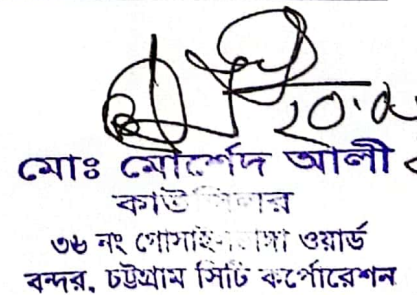 ২০.০
মোঃ মোর্শেদ আলী
কাউন্সিলর
৩৬ নং গোসাইলডাঙ্গা ওয়ার্ড
বন্দর, চট্টগ্রাম সিটি কর্পোরেশন